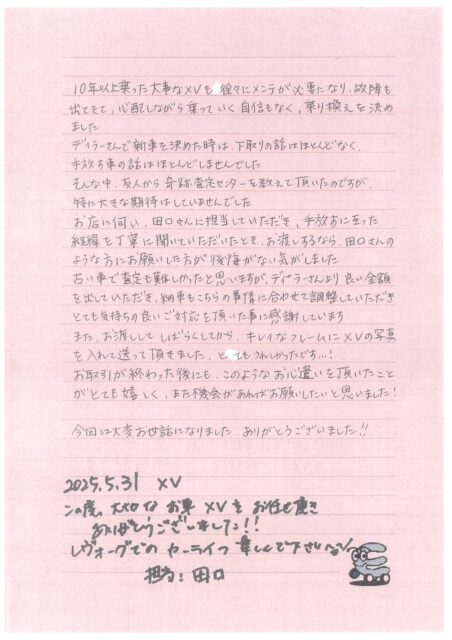 10年以上乗った大事なXVも徐々にメンテが必要になり、故障も
出てきて、心配しながら乗っていく自信もなく、乗り換えを決め
ました
ディラーさんで新車を決めた時は、下取りの話はほとんどなく、
手放す車の話はほとんどしませんでした
そんな中、友人から奇跡の査定センターを教えて頂いたのですが、
特に大きな期待はしていませんでした
お店に伺い、田口さんに担当していただき、手放すに至った
経緯を丁寧に聞いていただいたとき、お渡しするなら、田口さんの
ような方にお願いした方が後悔がない気がしました
古い車で査定も難しかったと思いますが、ディーラーさんより良い金額
を出していただき、納車もこちらの事情に合わせて調整していただき
とても気持ちの良いご対応を頂いた事に感謝しています
また、お渡ししてしばらくしてから、キレイなフレームにXVの写真
を入れて送って頂きました、とてもうれしかったです…!
お取引が終わった後にも、このようなお心遣いを頂いたこと
がとても嬉しく、また機会があればお願いしたいと思いました!
今回は大変お世話になりました、ありがとうございました!!
2025.5.31 XV
この度、大切なお車XVをお任せ頂き
ありがとうございました!!
レヴォーグでのカーライフ楽しんで下さいね
担当:田口